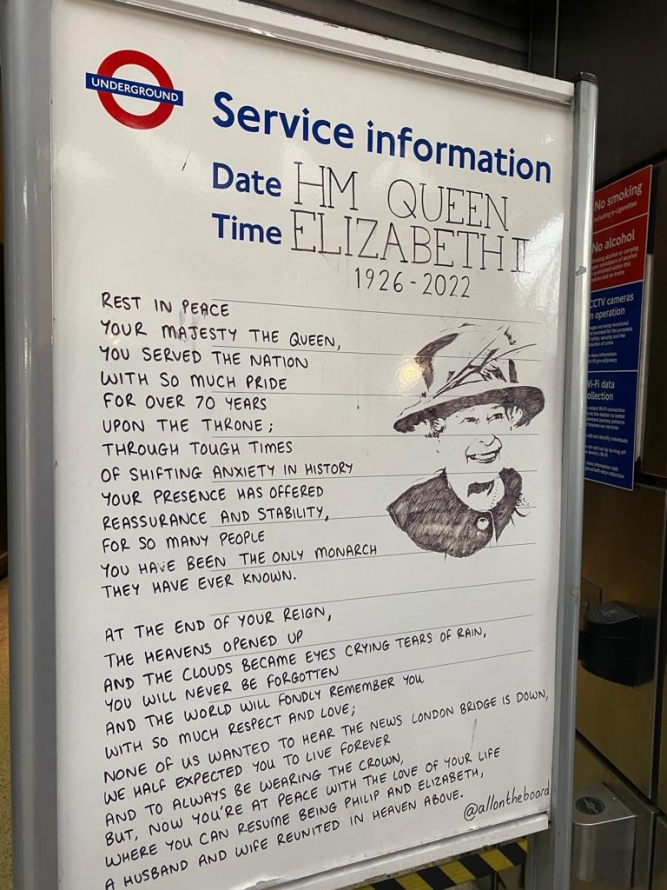 UNDERGROUND
Service information
Date HM QUEEN
Time ELIZABETH II
1926-2022
REST IN PEACE
YOUR MAJESTY THE QUEEN,
YOU SERVED THE NATION
WITH SO MUCH PRIDE
FOR OVER 70 YEARS
UPON THE THRONE;
THROUGH TOUGH TIMES
OF SHIFTING ANXIETY IN HISTORY
YOUR PRESENCE HAS OFFERED
REASSURANCE AND STABILITY,
FOR SO MANY PEOPLE
YOU HAVE BEEN THE ONLY MONARCH
THEY HAVE EVER KNOWN.
AT THE END OF YOUR REIGN,
THE HEAVENS OPENED UP
AND THE CLOUDS BECAME EYES CRYING TEARS OF RAIN,
YOU WILL NEVER BE FORGOTTEN
AND THE WORLD WILL FONDLY REMEMBER YOU
WITH SO MUCH RESPECT AND LOVE;
NONE OF US WANTED TO HEAR THE NEWS LONDON BRIDGE IS DOWN,
WE HALF EXPECTED YOU TO LIVE FOREVER
AND TO ALWAYS BE WEARING THE CROWN,
BUT, NOW YOU'RE AT PEACE WITH THE LOVE OF YOUR LIFE
WHERE YOU CAN RESUME BEING PHILIP AND ELIZABETH,
A HUSBAND AND WIFE REUNITED IN HEAVEN ABOVE.
@allontheboard
No smoking
No alcohol
CCTV cameras
operation
data